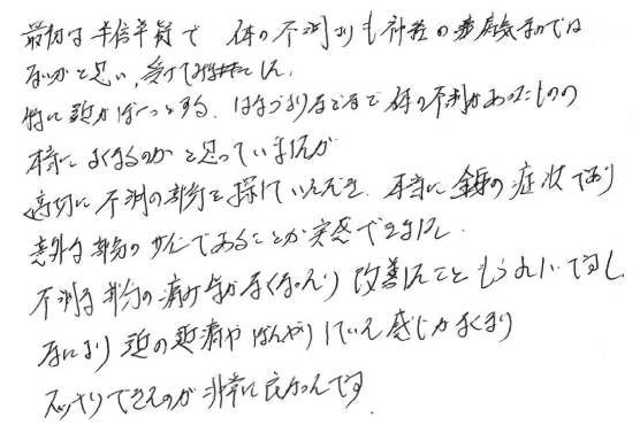 最初は半信半疑で 体の不調よりも神経の病気なのでは
ないかと思い、受けてみました。
特に頭がぼーっとする、はなづまりなどまで体の不調があったものの
本当によくなるのかと思っていましたが
適切に不調の部分を探していただき、本当に全身の症状であり
意外な部分のサインであることが実感できました。
不調な部分の痛みなどがなくなったり改善したこともうれしいですし
なにより頭の頭痛やぼんやりしていた感じがなくなり
スッキリできたのが非常に良かったです。